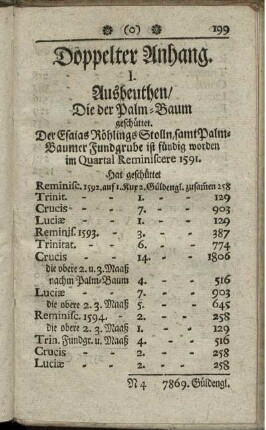 (o) 199
Doppelter Anhang.
I.
Ausbeuthen/
Die der Palm-Baum
geschüttet.
Der Esaias Röhlings Stolln, samt Palm-
Baumer Fundgrube ist fündig worden
im Quartal Reminiscere 1591.
Hat geschüttet
Reminisc. 1592. auf 1. Kux 2. Güldengl. zusamen 258
Trinit. - - 1. - - 129
Crucis - - 7. - - 903
Luciæ - - 1. - - 129
Reminis. 1593. - 3. - - 387
Trinitat. - - 6. - - 774
Crucis - - 14. - - 1806
die obere 2. u. 3. Maaß
nachm Palm-Baum 4. - - 516
Luciæ - - 7. - - 903
die obere 2. 3. Maaß 5. - - 645
Reminisc. 1594. - 2. - - 258
die obere 2. 3. Maaß 1. - - 129
Trin. Fundgr. u. Maaß 4. - - 516
Crucis - - 2. - - 258
Luciæ - - 2. - - 258
N 4 7869. Güldengl.